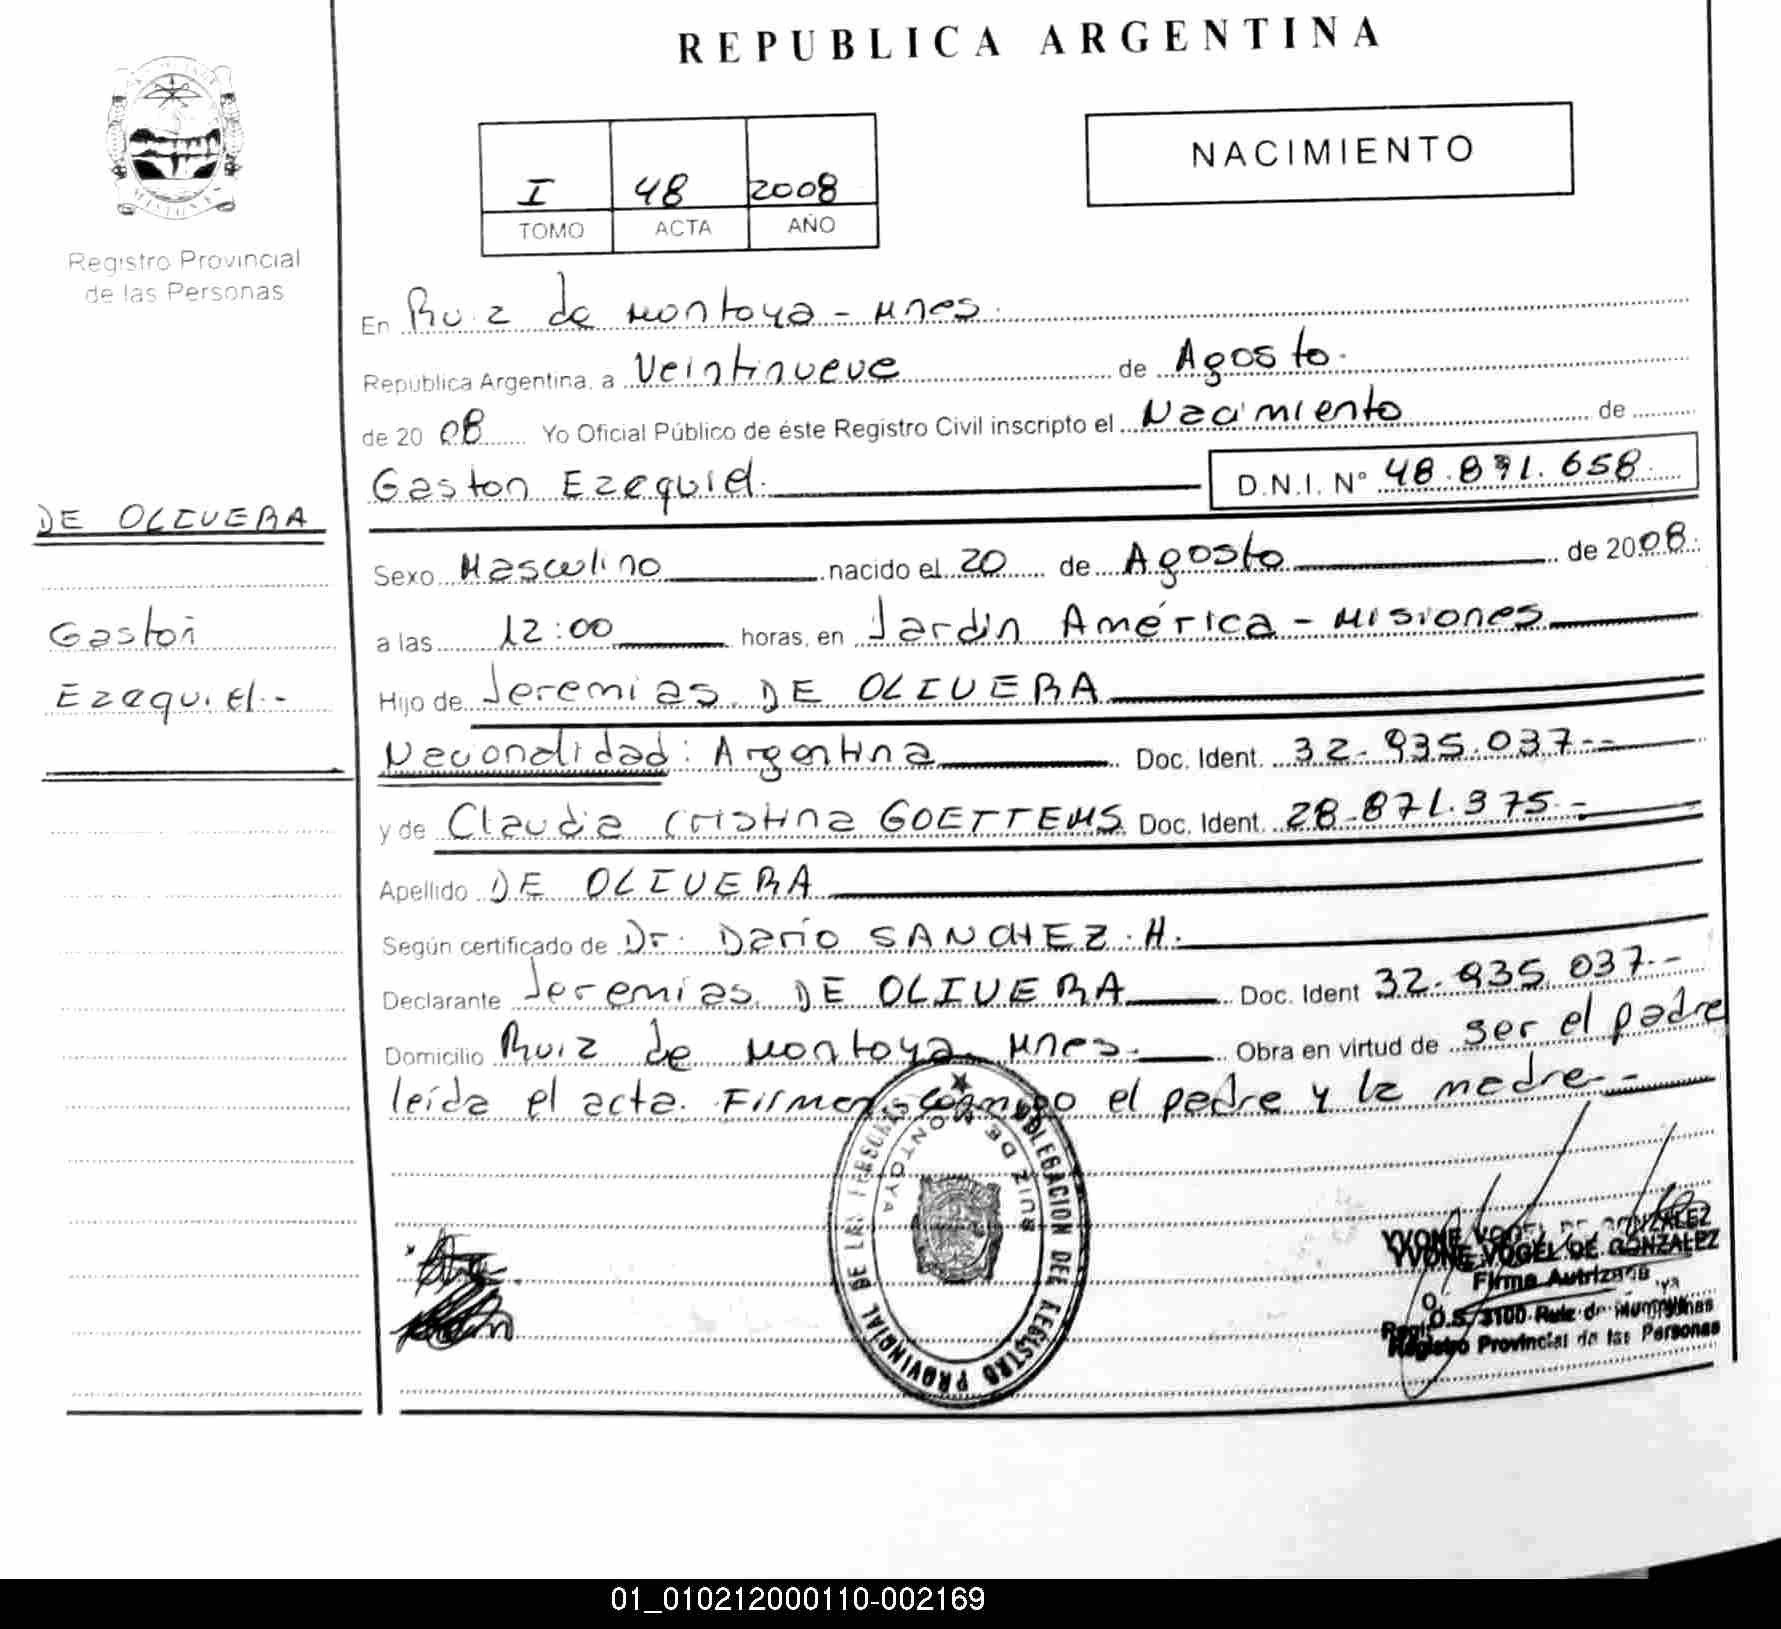 REPUBLICA ARGENTINA
NACIMIENTO
I 48 2008
TOMO ACTA AÑO
Registro Provincial
de las Personas
En Ruiz de Montoya - Mnes.
Republica Argentina, a Veintinueve de Agosto.
de 20 08 Yo Oficial Público de éste Registro Civil inscripto el Nacimiento de
Gaston Ezequiel. D.N.I. Nº 48.891.658.
DE OLIVERA
Sexo Masculino nacido el 20 de Agosto de 2008.
Gaston
a las 12:00 horas, en Jardin América - Misiones
Ezequiel.-
Hijo de Jeremias DE OLIVERA
Nacionalidad: Argentina Doc. Ident. 32.935.037.--
y de Claudia Cristina GOETTEMS Doc. Ident. 28.871.375.-
Apellido DE OLIVERA
Según certificado de Dr. Dario SANCHEZ. H.
Declarante Jeremias DE OLIVERA Doc. Ident 32.935.037.--
Domicilio Ruiz de Montoya Mnes.- Obra en virtud de ser el padre
leida el acta. Firman conmigo el padre y la madre.-
DELEGACION DEL REGISTRO PROVINCIAL DE LAS PERSONAS
RUIZ DE MONTOYA
YVONE VOGEL DE GONZALEZ
YVONE VOGEL DE GONZALEZ
Firma Autrizada
O.S. 3100 Ruiz de
Registro Provincial de las Personas
01_010212000110-002169